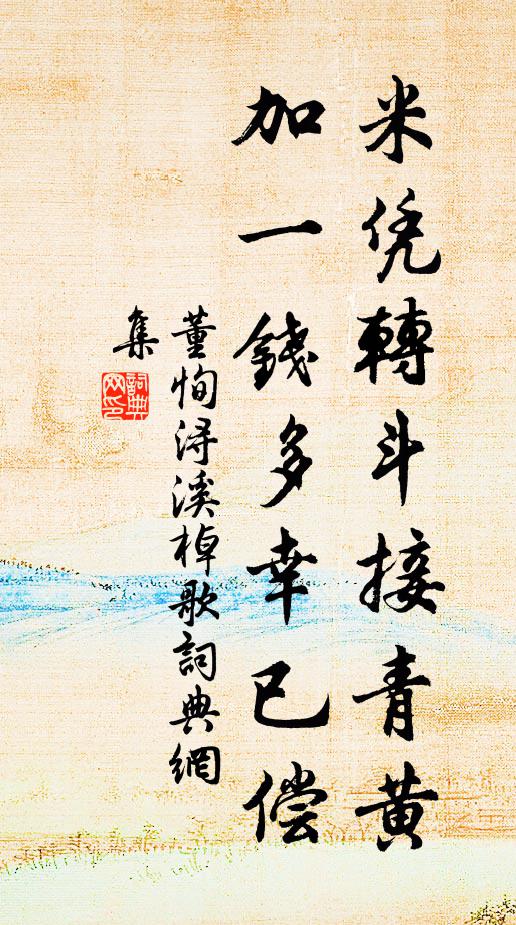 米凭轉斗接青黄
加一錢多幸已偿
董恂浔溪棹歌詞典網
集
詞典
网印